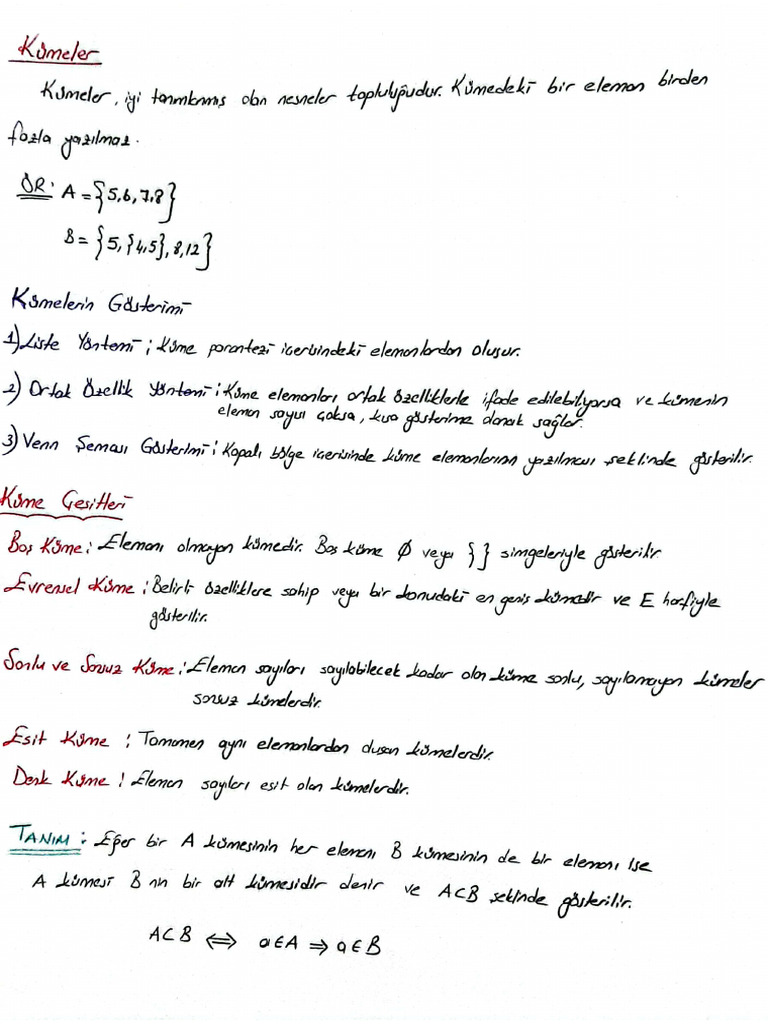 Kümeler
Kümeler, iyi tanımlanmış olan nesneler topluluğudur. Kümedeki bir eleman birden
fazla yazılmaz.
ÖR: A = {5,6,7,8}
B = {5, {4,5}, 8,12}
Kümelerin Gösterimi
1) Liste Yöntemi ; Küme parantezi içerisindeki elemanlardan oluşur.
2) Ortak Özellik Yöntemi : Küme elemanları ortak özelliklerle ifade edilebiliyorsa ve kümenin
eleman sayısı çoksa, kısa gösterime olanak sağlar.
3) Venn Şeması Gösterimi : Kapalı bölge içerisinde küme elemanlarının yazılması şeklinde gösterilir.
Küme Çeşitleri
Boş Küme : Elemanı olmayan kümedir. Boş küme Ø veya { } simgeleriyle gösterilir
Evrensel Küme : Belirli özelliklere sahip veya bir konudaki en geniş kümedir ve E harfiyle
gösterilir.
Sonlu ve Sonsuz Küme : Eleman sayıları sayılabilecek kadar olan küme sonlu, sayılamayan kümeler
sonsuz kümelerdir.
Eşit Küme : Tamamen aynı elemanlardan oluşan kümelerdir.
Denk Küme : Eleman sayıları eşit olan kümelerdir.
TANIM : Eğer bir A kümesinin her elemanı B kümesinin de bir elemanı ise
A kümesi B nin bir alt kümesidir denir ve A⊂B şeklinde gösterilir.
A⊂B ⇔ a∈A ⇒ a∈B